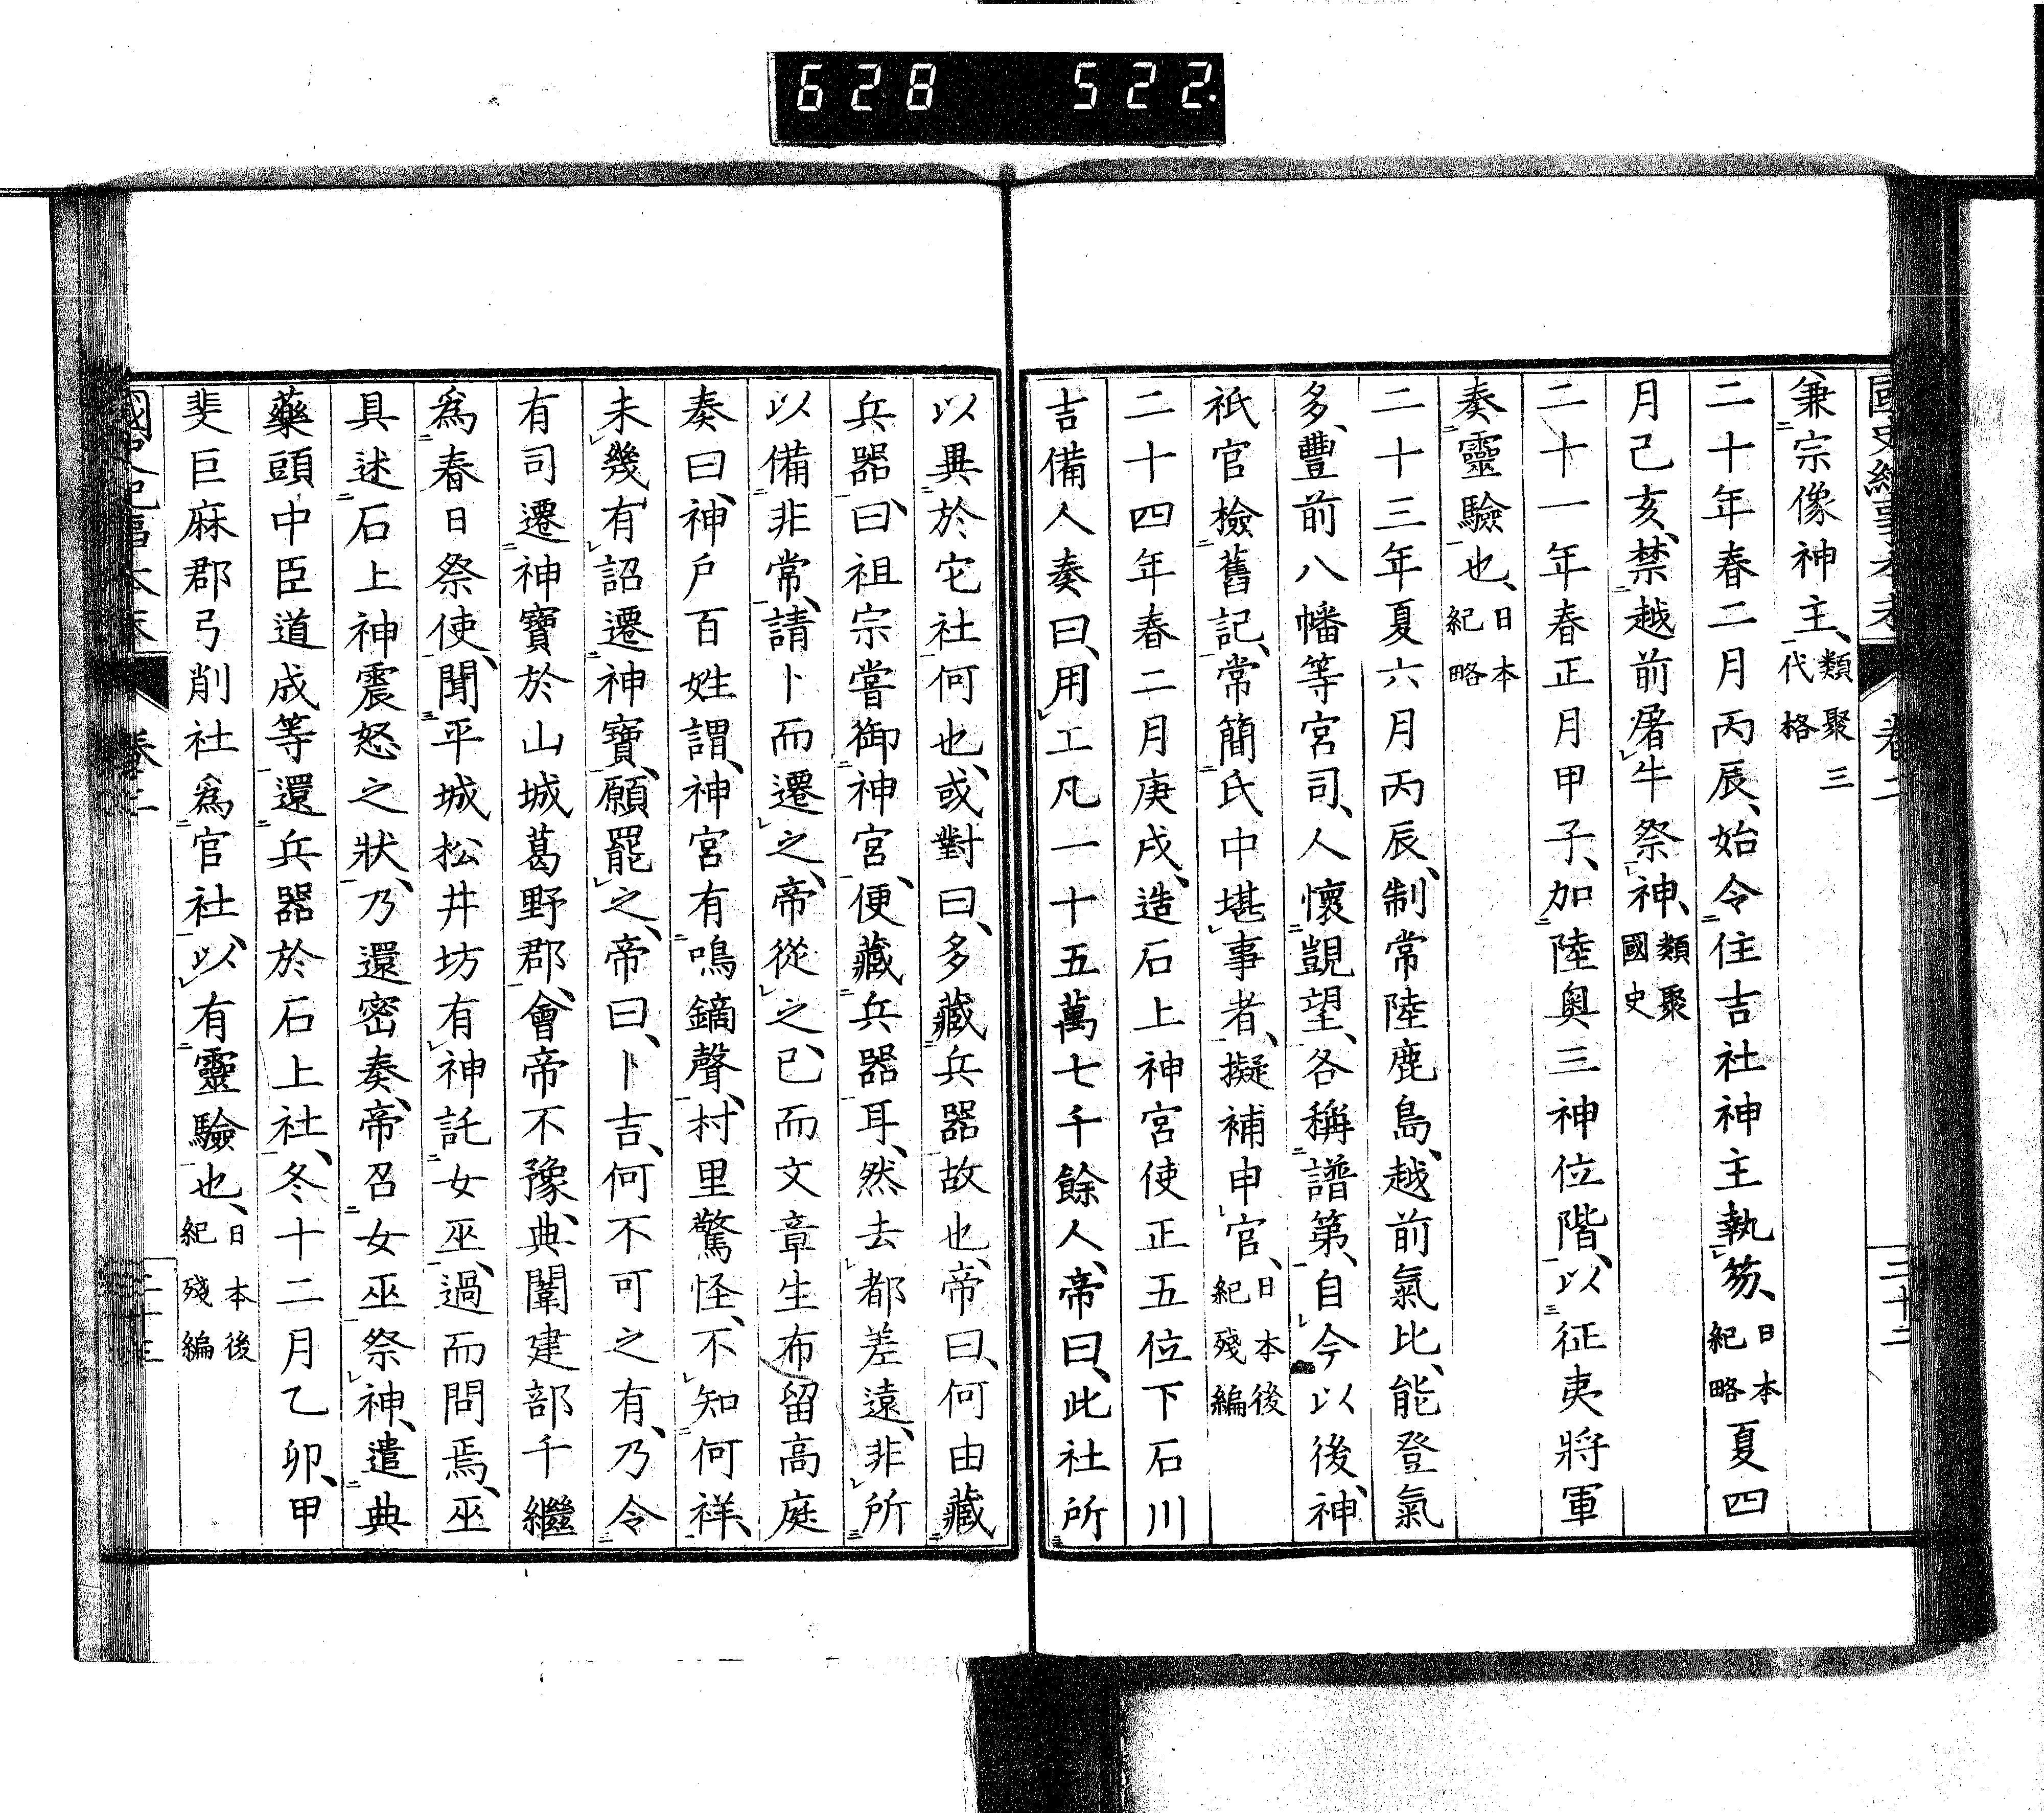 628 522.
卷二
二十二
兼宗像神主、類聚三代格
二十年春二月丙辰、始令住吉社神主執笏、日本紀略夏四
月己亥、禁越前屠牛祭神、類聚國史
二十一年春正月甲子、加陸奧三神位階、以征夷將軍
奏靈驗也、日本紀略
二十三年夏六月丙辰、制常陸鹿島、越前氣比、能登氣
多、豐前八幡等宮司、人懷覬望、各稱譜第、自今以後、神
祇官檢舊記、常簡氏中堪事者、擬補申官、日本後紀殘編
二十四年春二月庚戌、造石上神宮使正五位下石川
吉備人奏曰、用工凡一十五萬七千餘人、帝曰、此社所
以異於它社何也、或對曰、多藏兵器故也、帝曰、何由藏
兵器、曰、祖宗嘗御神宮、便藏兵器耳、然去都差遠、非所
以備非常、請卜而遷之、帝從之、已而文章生布留高庭
奏曰、神戶百姓謂、神宮有鳴鏑聲、村里驚怪、不知何祥、
未幾、有詔遷神寶、願罷之、帝曰、卜吉、何不可之有、乃令
有司遷神寶於山城葛野郡、會帝不豫、典闈建部千繼
爲春日祭使、聞平城松井坊有神託女巫、過而問焉、巫
具述石上神震怒之狀、乃還密奏、帝召女巫祭神、遣典
藥頭中臣道成等還兵器於石上社、冬十二月乙卯、甲
斐巨麻郡弓削社爲官社、以有靈驗也、日本後紀殘編